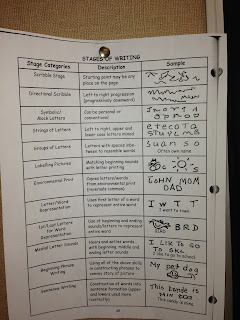 STAGES OF WRITING
Stage Categories Description Sample
Scribble Stage Starting point may be any
place on the page
Directional Scribble Left to right progression
(progressively downward)
Symbolic/
Mock Letters Can be personal or
conventional
Strings of Letters Left to right, upper and
lower case letters mixed
Groups of Letters Letters with spaces inbe-
tween to resemble words
Suanso
Often own name
Labelling Pictures Matching beginning sounds
with letter printing
Environmental Print Copies letters/words
from environmental print
(reversals common)
JOHN MOM
DAD
Letter/Word
Representation
Uses first letter of a word
to represent entire word
I W T T
I went to town
1st/Last Letters for
Word
Representation
Use of beginning and ending
sounds/letters to represent
entire word
BRD
Medial Letter Sounds Hears and writes words
with beginning, middle and
ending letter sounds
I LIKE TO GO
TO SKL
I like to go to school
Beginning Phrase
Writing
Using all of the above skills
in constructing phrases to
convey story of picture
My pet dog
Sentence Writing Construction of words into
sentence formation (upper
and lower used more
correctly)
This is mine.